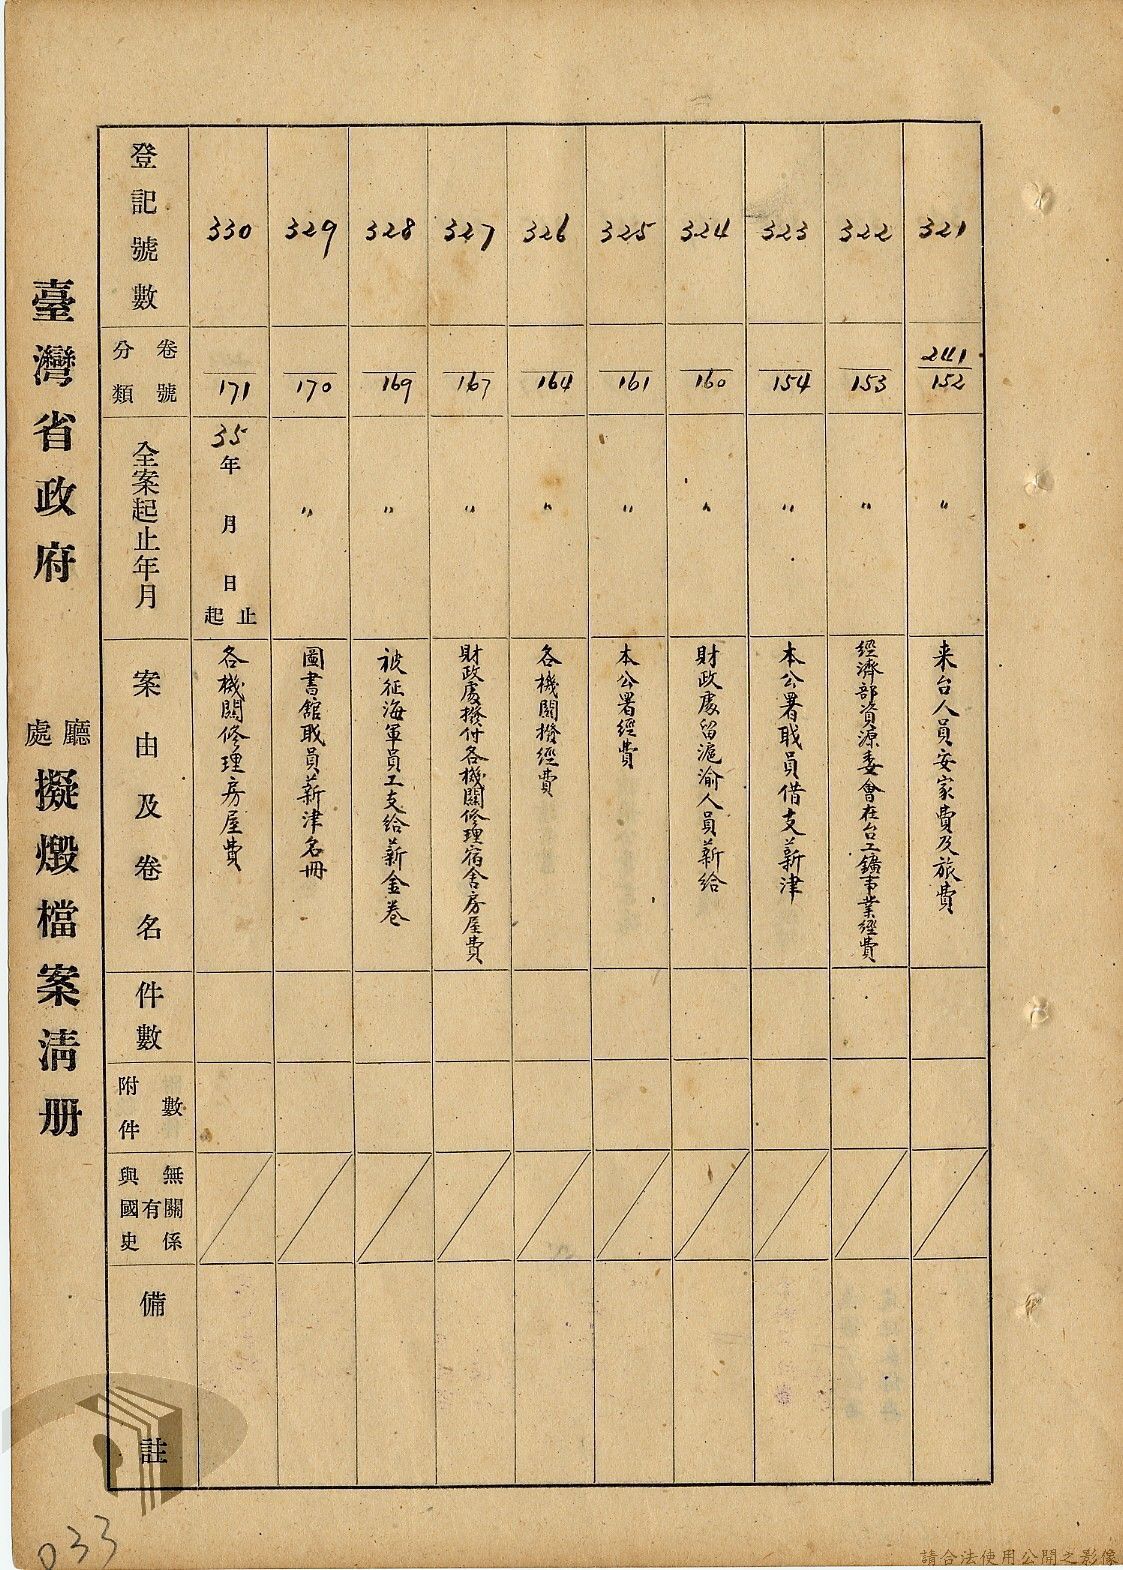 臺灣省政府 廳處 擬燬檔案清册
登記號數
分類 卷號
全案起止年月
案由及卷名
件數
附件數
與國史有無關係
備註
321
241
152
〃
来台人員安家費及旅費
322
153
〃
經濟部資源委會在台工鑛事業經費
323
154
〃
本公署职員借支薪津
324
160
〃
財政處留滬渝人員薪給
325
161
〃
本公署經費
326
164
〃
各機関撥經費
327
167
〃
財政處撥付各機関修理宿舍房屋費
328
169
〃
被征海軍員工支給薪金卷
329
170
〃
圖書館职員薪津名冊
330
171
35年 月 日 起止
各機関修理房屋費
033
請合法使用公開之影像